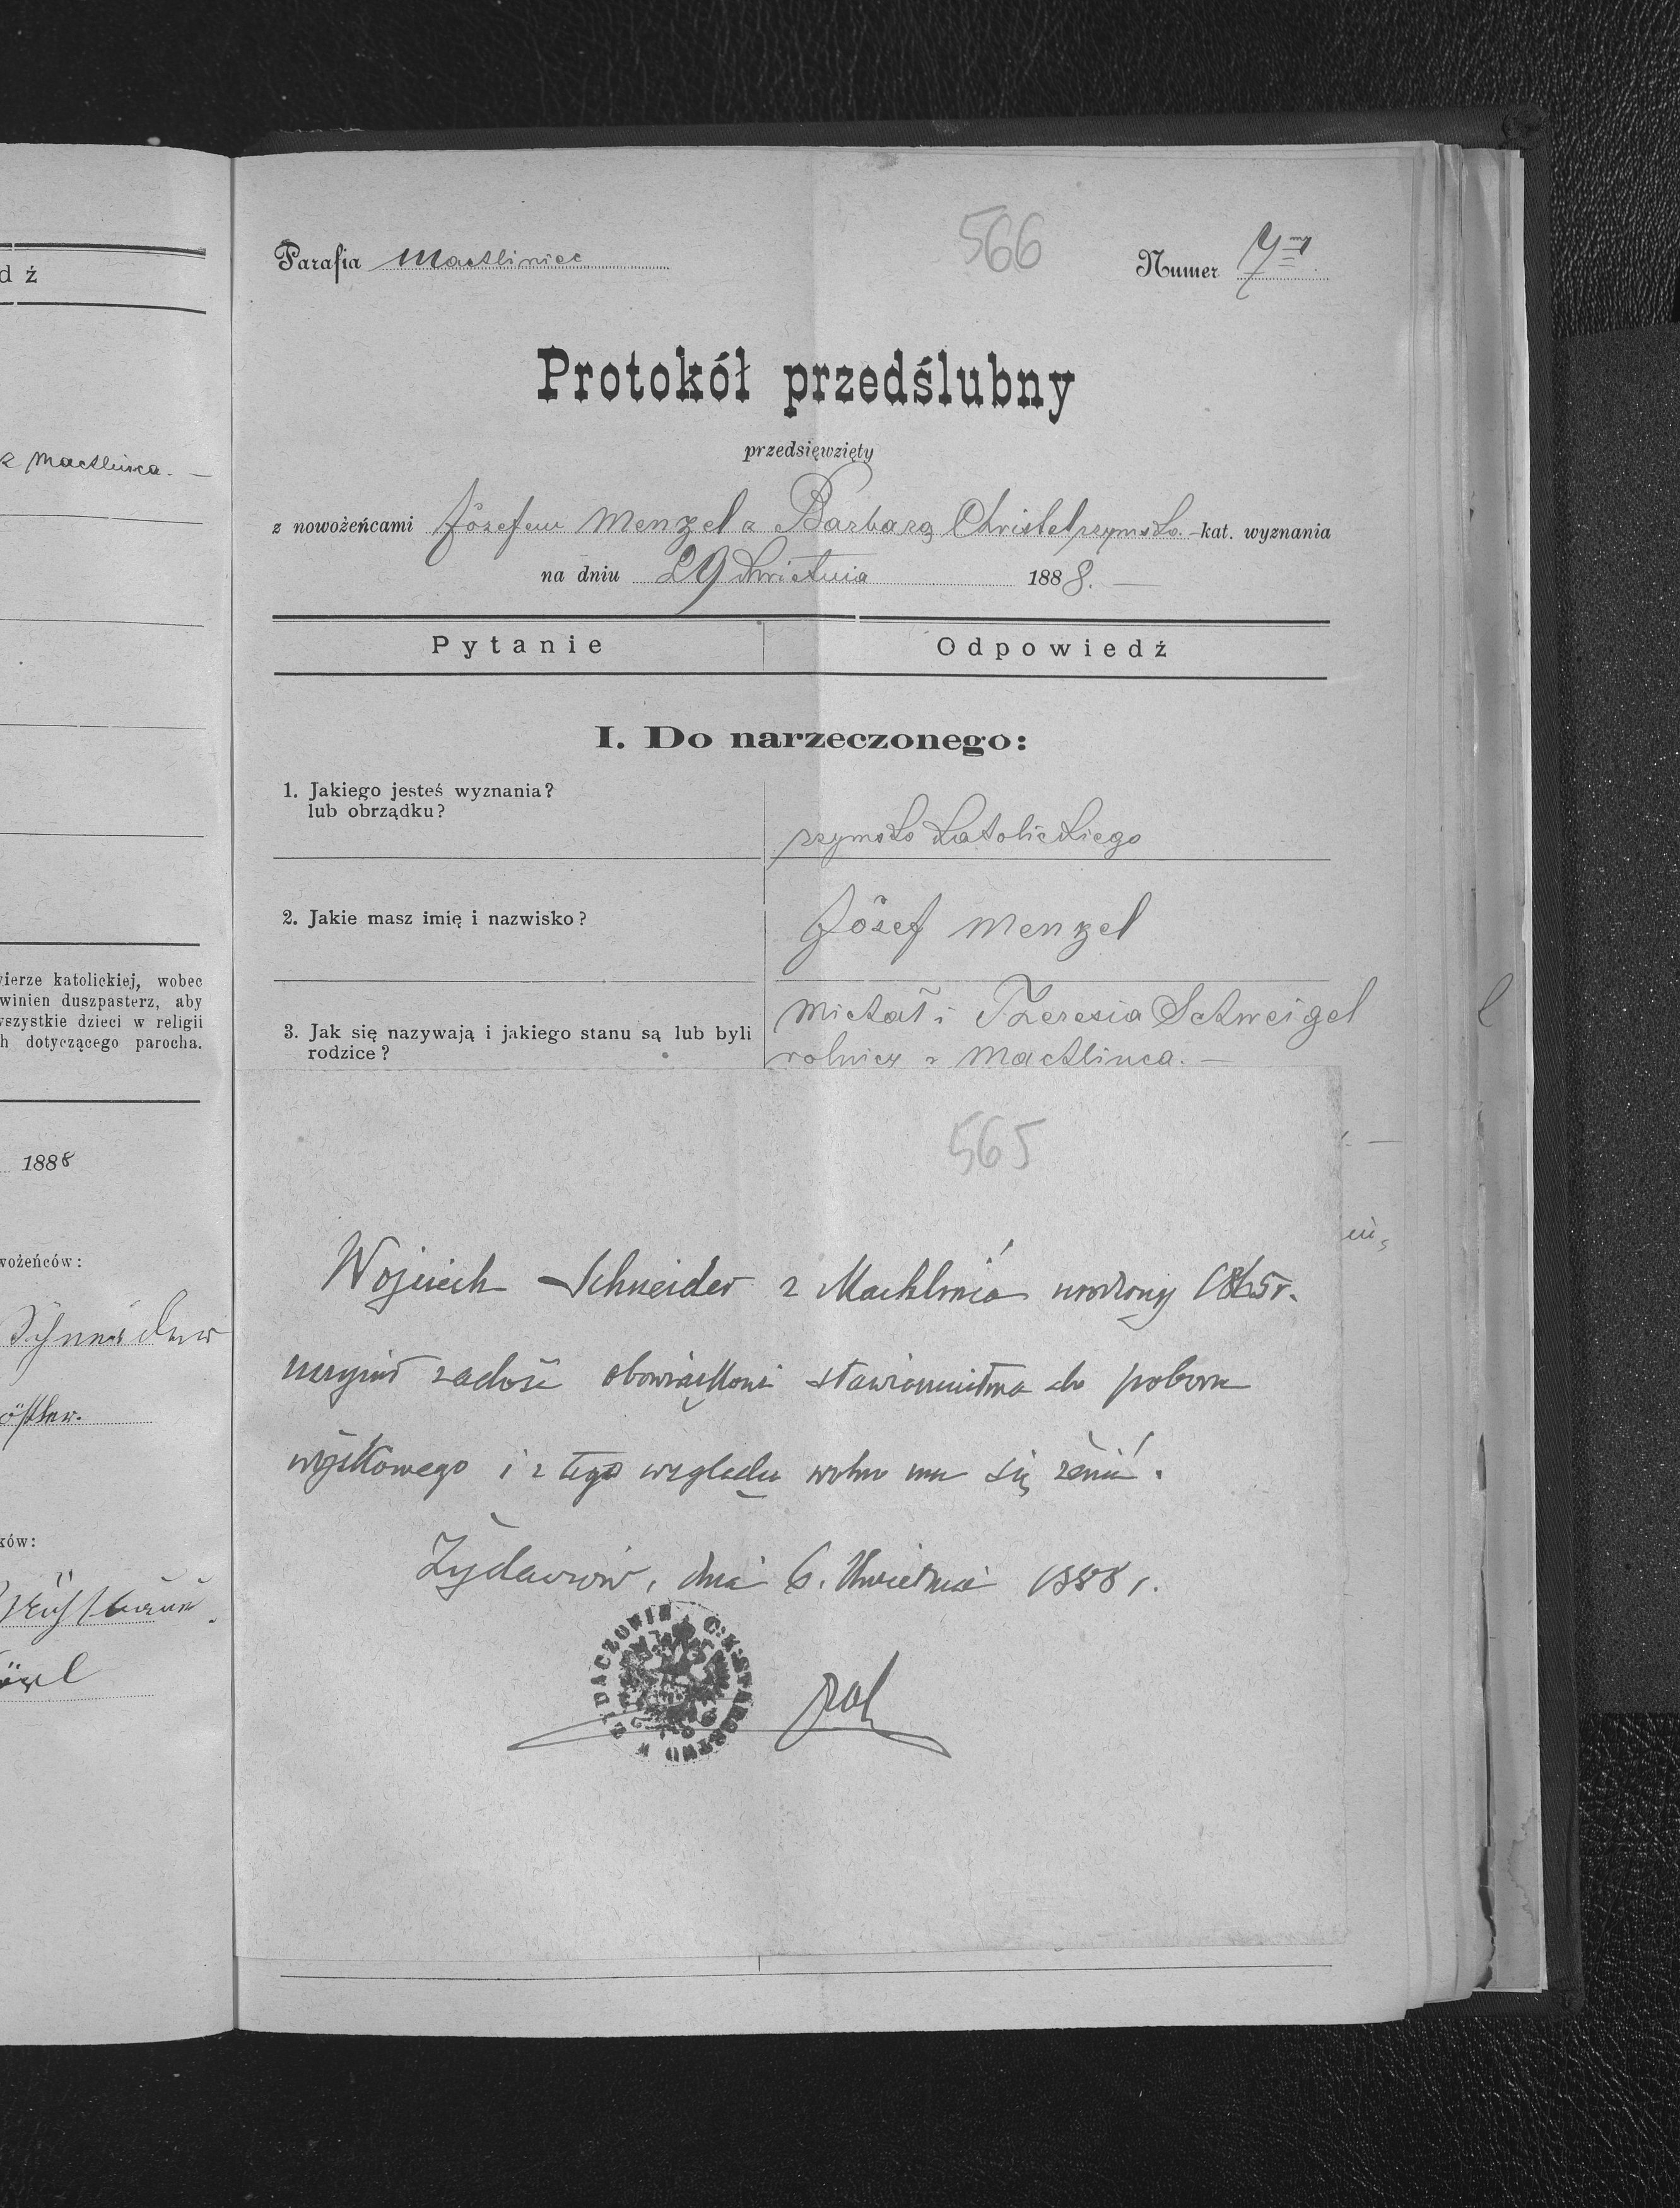 d ź
z Machlinca. —
wierze katolickiej, wobec
winien duszpasterz, aby
wszystkie dzieci w religii
h dotyczącego parocha.
1888
wożeńców:
ków:
566
Parafia Machliniec
Numer 7
Protokół przedślubny
przedsięwzięty
z nowożeńcami Józefem Menzel a Barbarą Christel rzymsko.-kat. wyznania
na dniu 29 Kwietnia 1888. —
Pytanie Odpowiedź
I. Do narzeczonego:
1. Jakiego jesteś wyznania?
lub obrządku?
rzymsko katolickiego
2. Jakie masz imię i nazwisko?
Józef Menzel
3. Jak się nazywają i jakiego stanu są lub byli
rodzice?
Michał i Theresia Schweigel
rolnicy z Machlinca. —
565
Wojciech Schneider z Machlińca urodzony 1865 r.
uczynił zadość obowiązkowi stawiennictwa do poboru
wojskowego i z tego względu wolno mu się żenić.
Żydaczów, dnia 6. Kwietnia 1888 r.
C. K. STAROSTWO W ŻYDACZOWIE